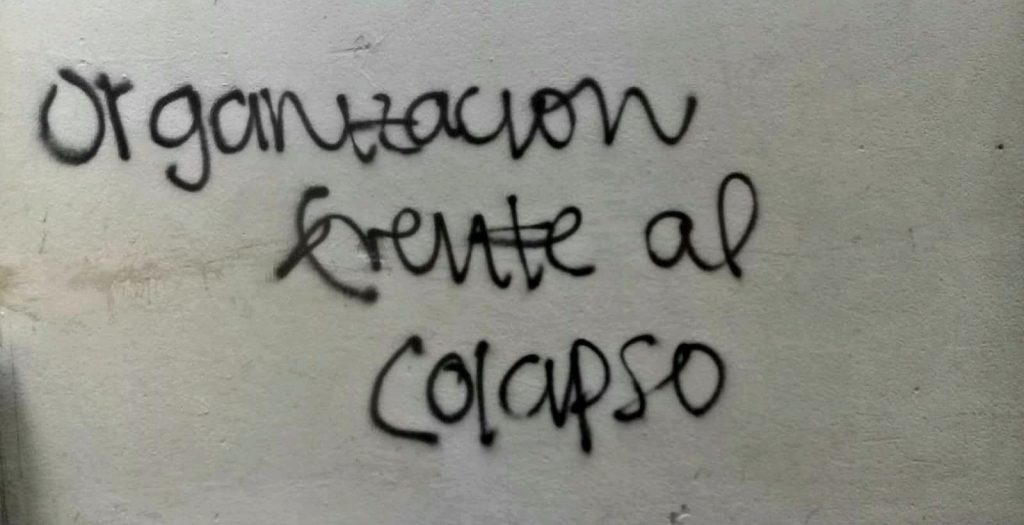 organizacion
frente al
colapso